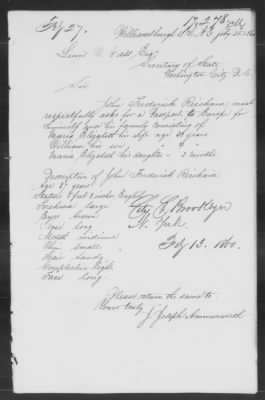 Fby 27.
17,278
Williamsburgh L. I. N. Y. July 1860
Lewis Cass Esq
Secretary of State
Washington City D. C.
Sir
John Frederick Reichard must
respectfully asks for a Passport to Europe for
himself and his family consisting of
Maria Elizabeth his wife age years
William his son "
Maria Elizabeth his daughter " 3 months
Description of John Frederick Reichard
Age 37 years
Stature 5 feet 3 inches English
Forehead large
Eyes brown
Nose long
Mouth medium
Chin small
Hair sandy
Complection light
Face long.
City of Brooklyn
N. York
Fby 13. 1860.
Please return the same to
Yours truly
J. Joseph